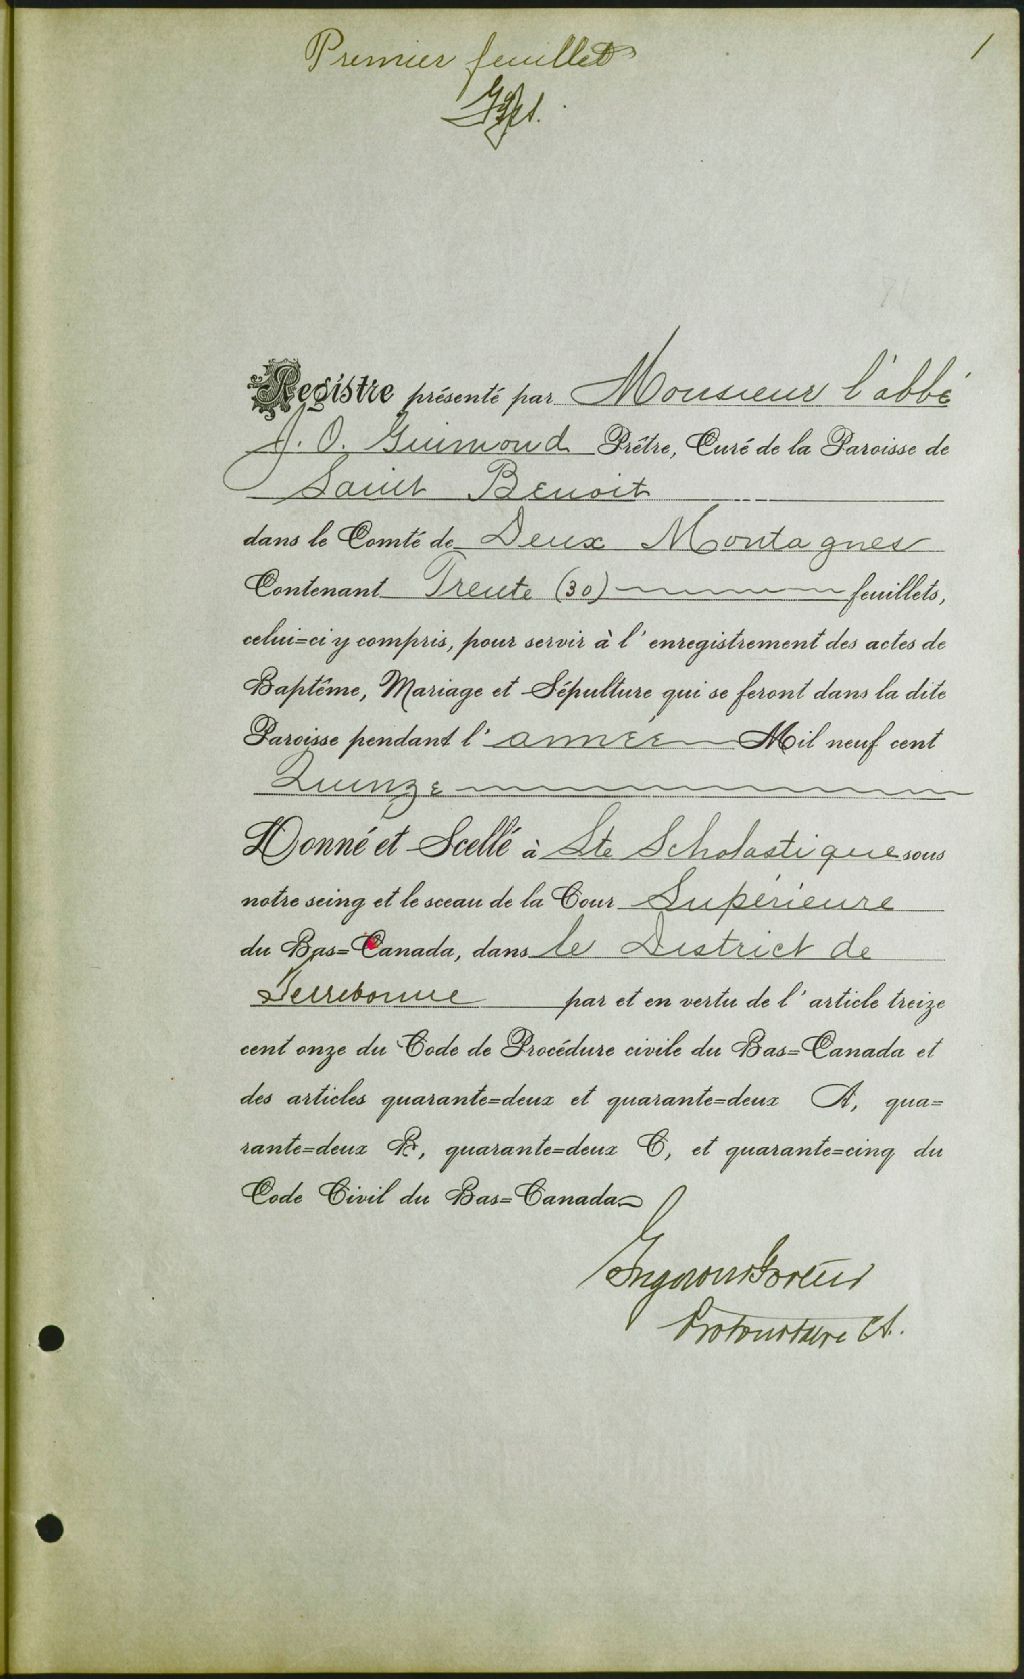 Premier feuillet
1
Registre présenté par Monsieur l'abbé
J. O. Guimond Prêtre, Curé de la Paroisse de
Saint Benoit
dans le Comté de Deux Montagnes
Contenant Trente (30) feuillets,
celui=ci y compris, pour servir à l'enregistrement des actes de
Baptême, Mariage et Sépulture qui se feront dans la dite
Paroisse pendant l'année Mil neuf cent
Quinze
Donné et Scellé à Ste Scholastique sous
notre seing et le sceau de la Cour Supérieure
du Bas=Canada, dans le District de
Terrebonne par et en vertu de l'article treize
cent onze du Code de Procédure civile du Bas=Canada et
des articles quarante=deux et quarante=deux A, qua=
rante=deux B, quarante=deux C, et quarante=cinq du
Code Civil du Bas=Canada